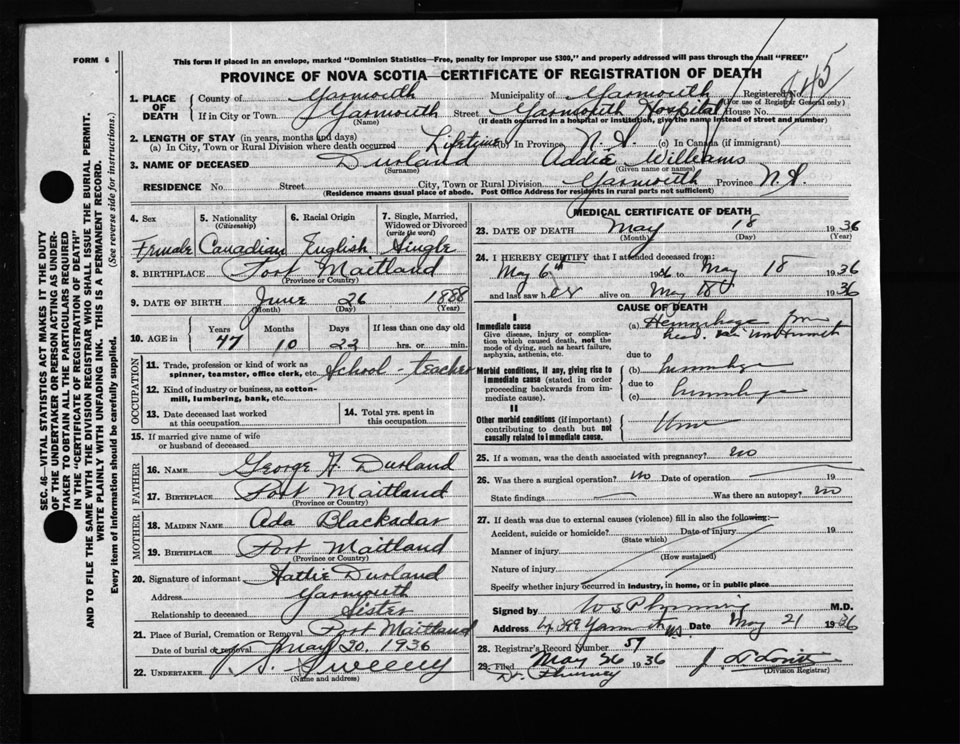 FORM 6
This form if placed in an envelope, marked "Dominion Statistics—Free, penalty for improper use $300," and properly addressed will pass through the mail "FREE"
PROVINCE OF NOVA SCOTIA—CERTIFICATE OF REGISTRATION OF DEATH
SEC. 46—VITAL STATISTICS ACT MAKES IT THE DUTY
OF THE UNDERTAKER OR PERSON ACTING AS UNDER-
TAKER TO OBTAIN ALL THE PARTICULARS REQUIRED
IN THE "CERTIFICATE OF REGISTRATION OF DEATH"
AND TO FILE THE SAME WITH THE DIVISION REGISTRAR WHO SHALL ISSUE THE BURIAL PERMIT.
WRITE PLAINLY WITH UNFADING INK. THIS IS A PERMANENT RECORD.
Every item of Information should be carefully supplied. (See reverse side for instructions.)
1. PLACE OF DEATH
County of Yarmouth Municipality of Yarmouth Registered No. 145
(For use of Registrar General only)
If in City or Town Yarmouth Street Yarmouth Hospital House No.
(Name) (If death occurred in a hospital or institution, give the name instead of street and number)
2. LENGTH OF STAY (in years, months and days)
(a) In City, Town or Rural Division where death occurred Lifetime (b) In Province N.S. (c) In Canada (if immigrant)
3. NAME OF DECEASED Durland Addie Williams
(Surname) (Given name or names)
RESIDENCE No. Street City, Town or Rural Division Yarmouth Province N.S.
(Residence means usual place of abode. Post Office Address for residents in rural parts not sufficient)
4. Sex Female
5. Nationality (Citizenship) Canadian
6. Racial Origin English
7. Single, Married, Widowed or Divorced (write the word) Single
8. BIRTHPLACE Port Maitland
(Province or Country)
9. DATE OF BIRTH June 26 1888
(Month) (Day) (Year)
10. AGE in Years Months Days If less than one day old
47 10 22 hrs. or min.
OCCUPATION
11. Trade, profession or kind of work as
spinner, teamster, office clerk, etc. School-teacher
12. Kind of industry or business, as cotton-
mill, lumbering, bank, etc.
13. Date deceased last worked
at this occupation
14. Total yrs. spent in
this occupation
15. If married give name of wife
or husband of deceased
FATHER
16. NAME George H. Durland
17. BIRTHPLACE Port Maitland
(Province or Country)
MOTHER
18. MAIDEN NAME Ada Blackadar
19. BIRTHPLACE Port Maitland
(Province or Country)
20. Signature of informant Hattie Durland
Address Yarmouth
Relationship to deceased Sister
21. Place of Burial, Cremation or Removal Port Maitland
Date of burial or removal May 20, 1936
22. UNDERTAKER Sweeny
(Name and address)
MEDICAL CERTIFICATE OF DEATH
23. DATE OF DEATH May 18 1936
(Month) (Day) (Year)
24. I HEREBY CERTIFY that I attended deceased from:
May 6th 1936 to May 18 1936
and last saw her alive on May 18 1936
CAUSE OF DEATH
I
Immediate cause
Give disease, injury or complica-
tion which caused death, not the
mode of dying, such as heart failure,
asphyxia, asthenia, etc.
(a) Hemorrhage from
due to
Morbid conditions, if any, giving rise to
immediate cause (stated in order
proceeding backwards from im-
mediate cause).
(b) hemorrhage
due to
(c) hemorrhage
II
Other morbid conditions (if important)
contributing to death but not
causally related to immediate cause.
25. If a woman, was the death associated with pregnancy? no
26. Was there a surgical operation? no Date of operation 19
State findings — Was there an autopsy? no
27. If death was due to external causes (violence) fill in also the following:—
Accident, suicide or homicide? Date of injury 19
(State which)
Manner of injury
(How sustained)
Nature of injury
Specify whether injury occurred in industry, in home, or in public place
Signed by M.D.
Address Yarm N.S. Date May 21 1936
28. Registrar's Record Number 57
29. Filed May 26 1936
(Division Registrar)